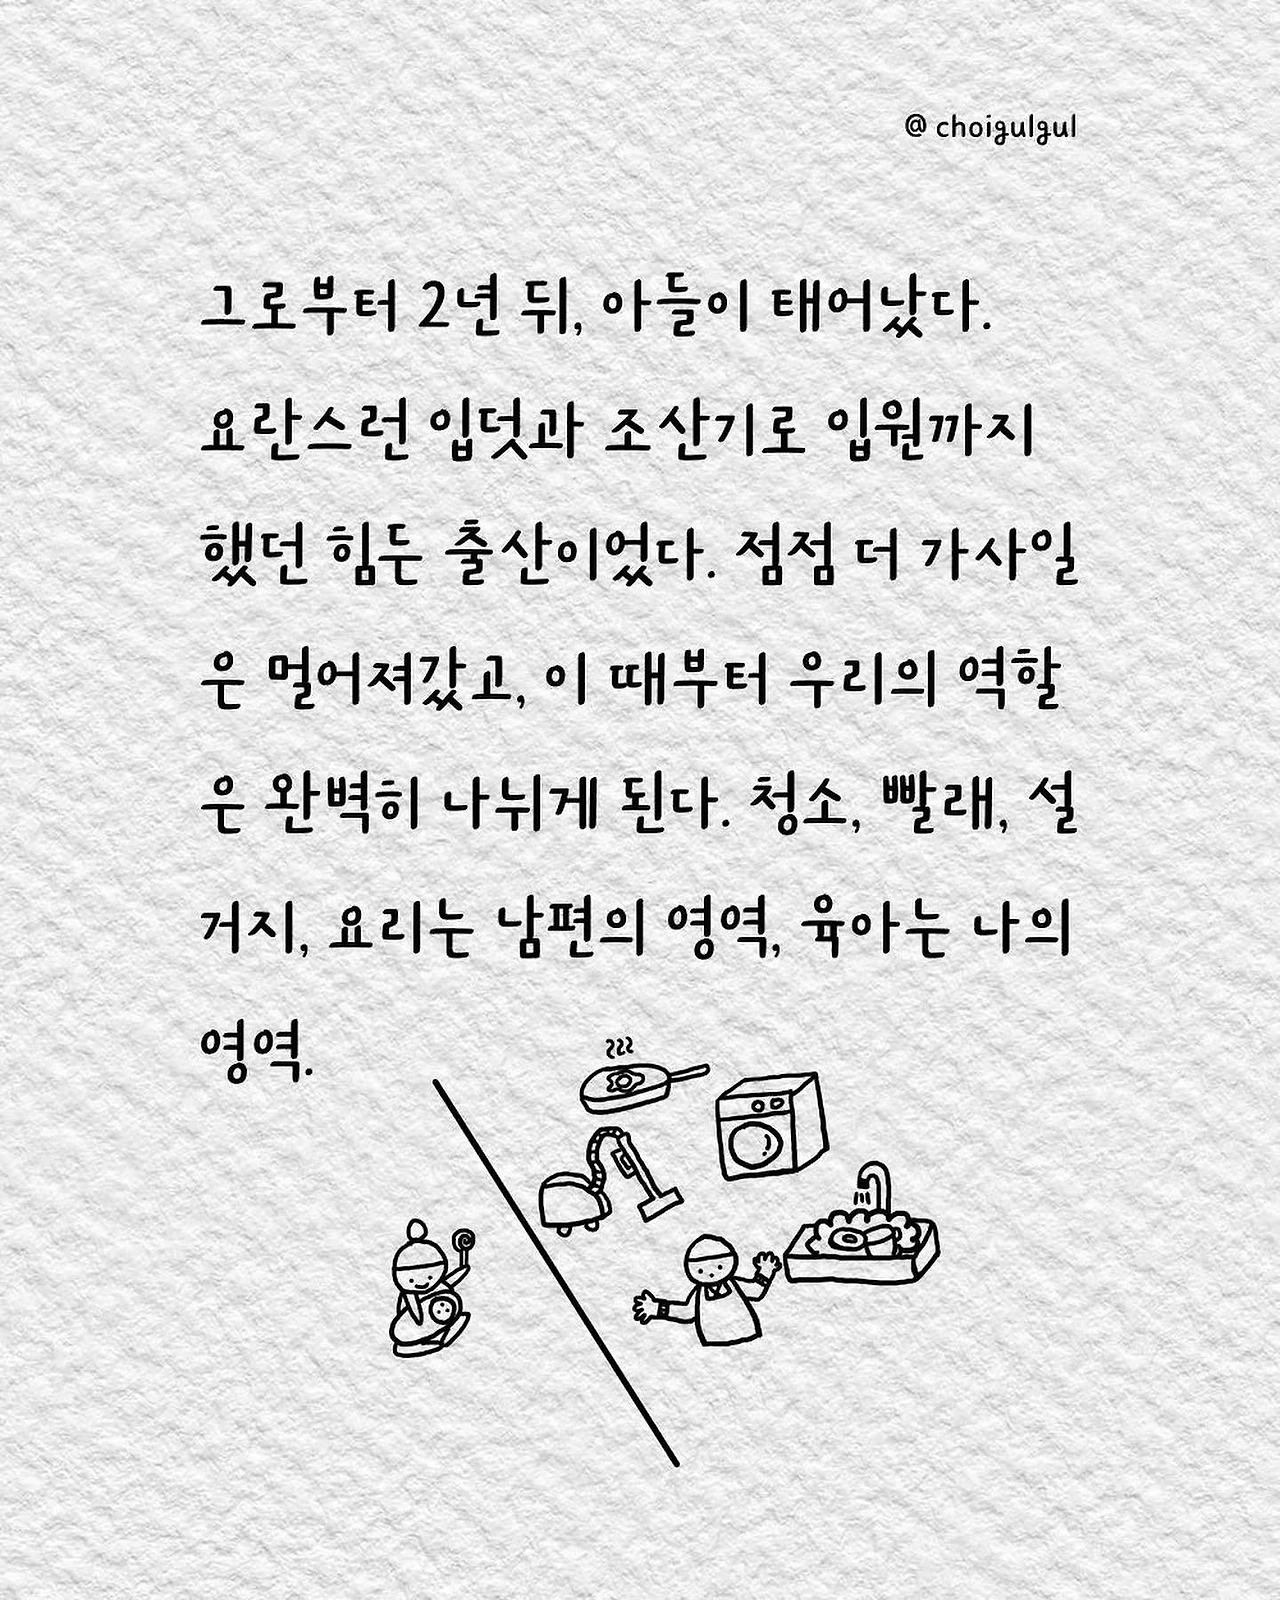 @ choigulgul
그로부터 2년 뒤, 아들이 태어났다.
요란스런 입덧과 조산기로 입원까지
했던 힘든 출산이었다. 점점 더 가사일
은 멀어져갔고, 이 때부터 우리의 역할
은 완벽히 나뉘게 된다. 청소, 빨래, 설
거지, 요리는 남편의 영역, 육아는 나의
영역.